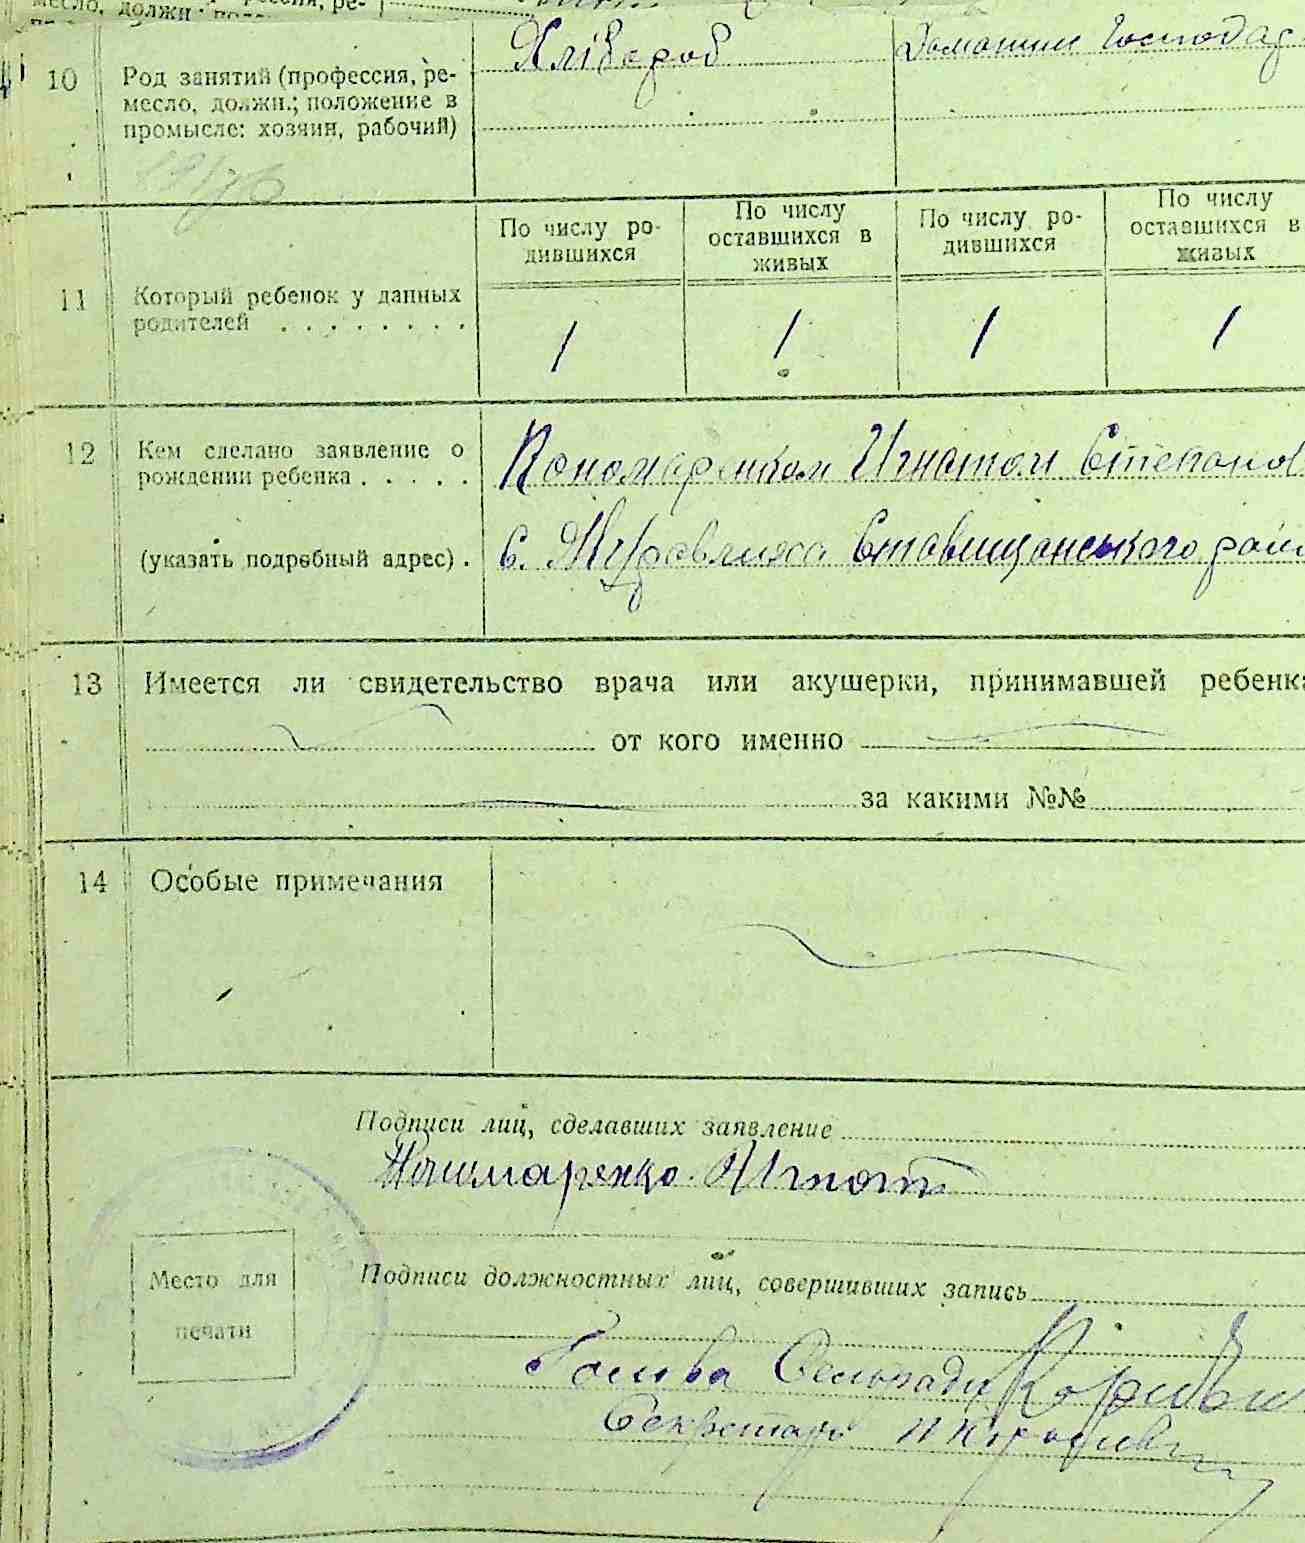 10
Род занятий (профессия, ре-
месло, должн.; положение в
промысле: хозяин, рабочий)
Хлібороб
Домашнє Господар
По числу ро-
дившихся
По числу
оставшихся в
живых
По числу ро-
дившихся
По числу
оставшихся в
живых
11
Который ребенок у данных
родителей . . . . . . . .
1 1 1 1
12
Кем сделано заявление о
рождении ребенка . . . . .
Пономаренком Игнатом Степанов
(указать подробный адрес) .
С. Журавлиха Ставищанського рай
13
Имеется ли свидетельство врача или акушерки, принимавшей ребенка
от кого именно
за какими №№
14
Особые примечания
Подписи лиц, сделавших заявление
Пономаренко Игнат
Место для
печати
Подписи должностных лиц, совершивших запись
Голова Сельради
Секретарь